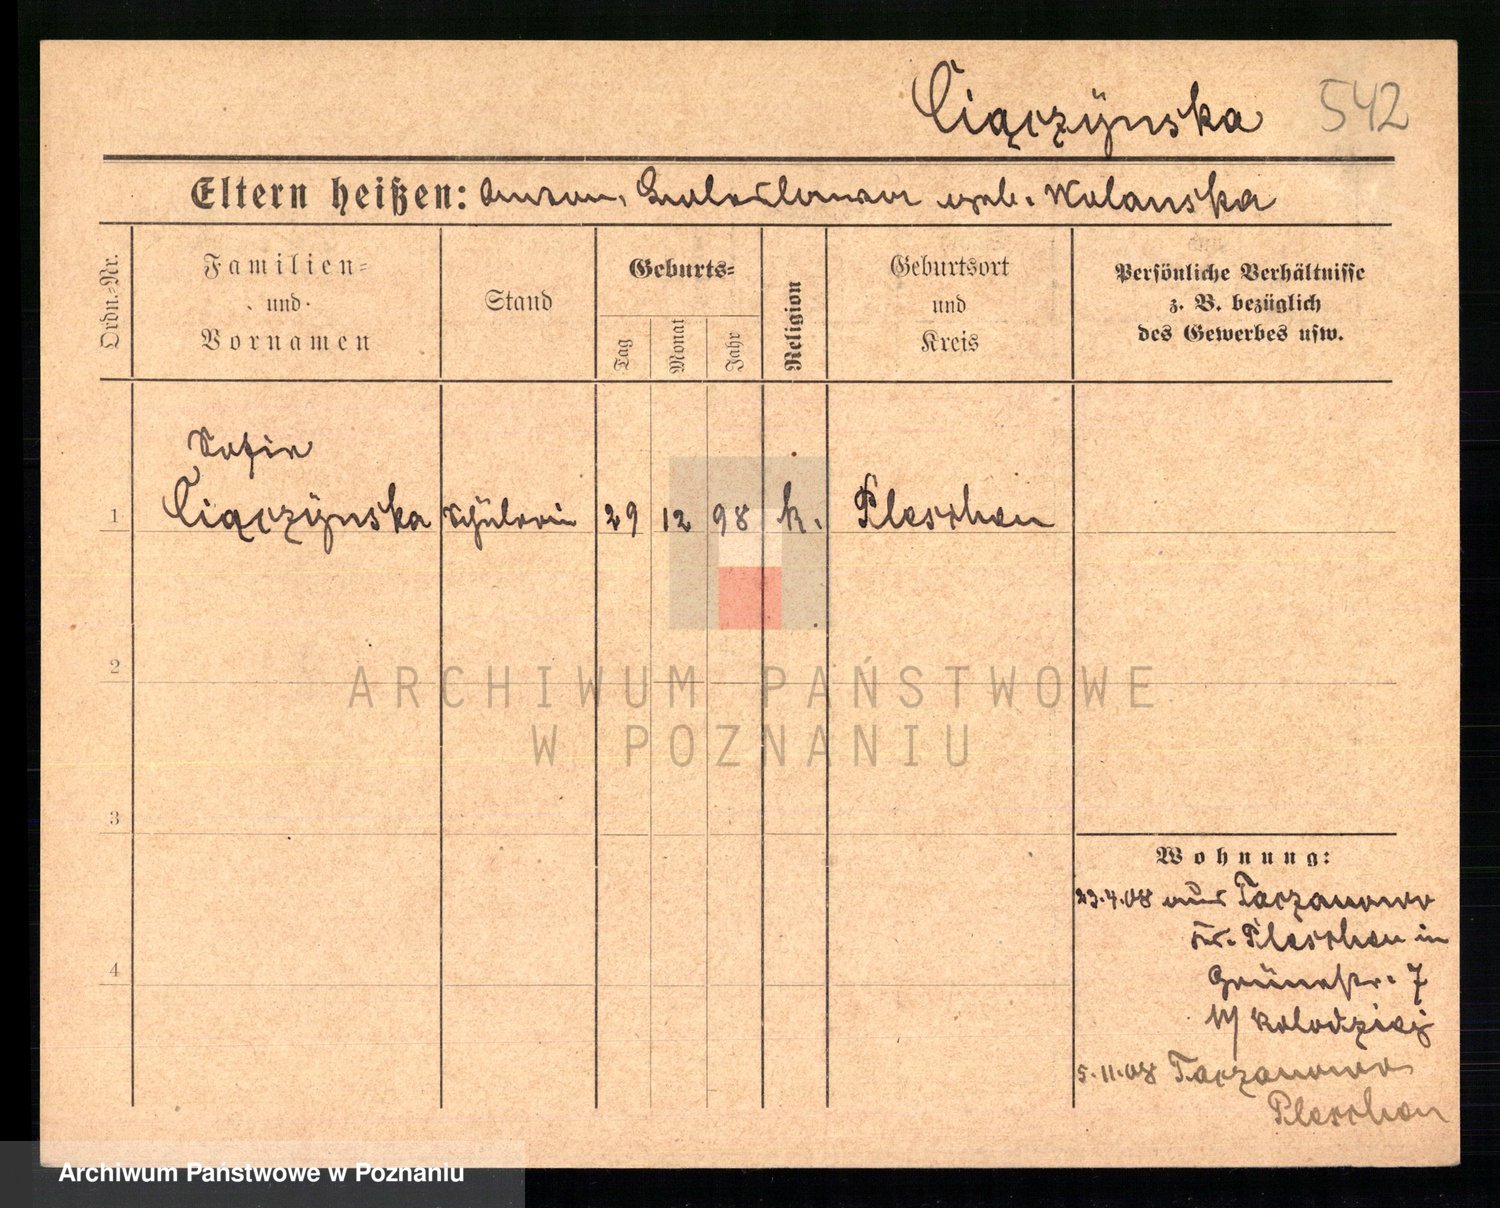 Ciączÿnska 542
Eltern heißen: Anton, geb. Wolanska
Ordn.-Nr.
Familien-
und
Vornamen
Stand
Geburts-
Tag
Monat
Jahr
Religion
Geburtsort
und
Kreis
Persönliche Verhältnisse
z. B. bezüglich
des Gewerbes usw.
Sofie
1 Ciączÿnska Schülerin 29 12 98 k. Pleschen
2
3
4
Wohnung:
23.4.08 aus Taczanowo
Kr. Pleschen in
Grünestr. 7
b/ Kolodziej
5.11.08 Taczanowo
Pleschen
ARCHIWUM PAŃSTWOWE
W POZNANIU
Archiwum Państwowe w Poznaniu